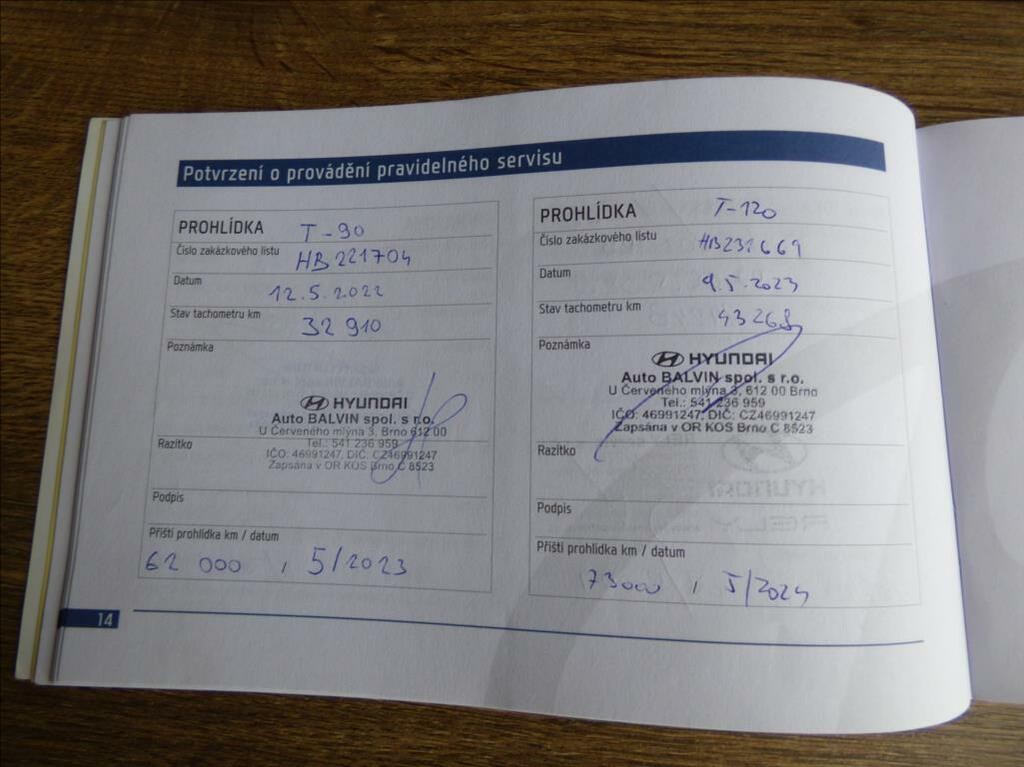 Potvrzení o provádění pravidelného servisu
PROHLÍDKA T-90
Číslo zakázkového listu HB221704
Datum 12.5.2022
Stav tachometru km 32 910
Poznámka
HYUNDAI
Auto BALVIN spol. s r.o.
U Červeného mlýna 3, Brno 612 00
Tel.: 541 236 959
IČO: 46991247, DIČ: CZ46991247
Zapsána v OR KOS Brno C 8523
Razítko
Podpis
Příští prohlídka km / datum
62 000 , 5/2023
PROHLÍDKA T-120
Číslo zakázkového listu HB231669
Datum 9.5.2023
Stav tachometru km 43268
Poznámka
HYUNDAI
Auto BALVIN spol. s r.o.
U Červeného mlýna 3, 612 00 Brno
Tel.: 541 236 959
IČO: 46991247, DIČ: CZ46991247
Zapsána v OR KOS Brno C 8523
Razítko
Podpis
Příští prohlídka km / datum
73000 , 5/2024
14